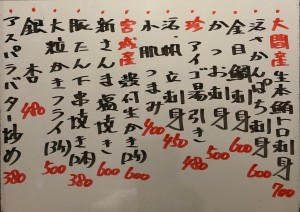 大間産 生本鮪トロ刺身 700
活〆かんぱち刺身 600
金目鯛刺身 600
かつお刺身 500
珍 アイゴ湯引き 480
活帆立刺身 450
水肌つまみ 400
宮城産 殻付生かき(2ヶ) 600
新さんま塩焼き 600
豚たん下串焼き(2本) 380
大粒かきフライ(3ヶ) 500
銀杏 480
アスパラバター炒め 380